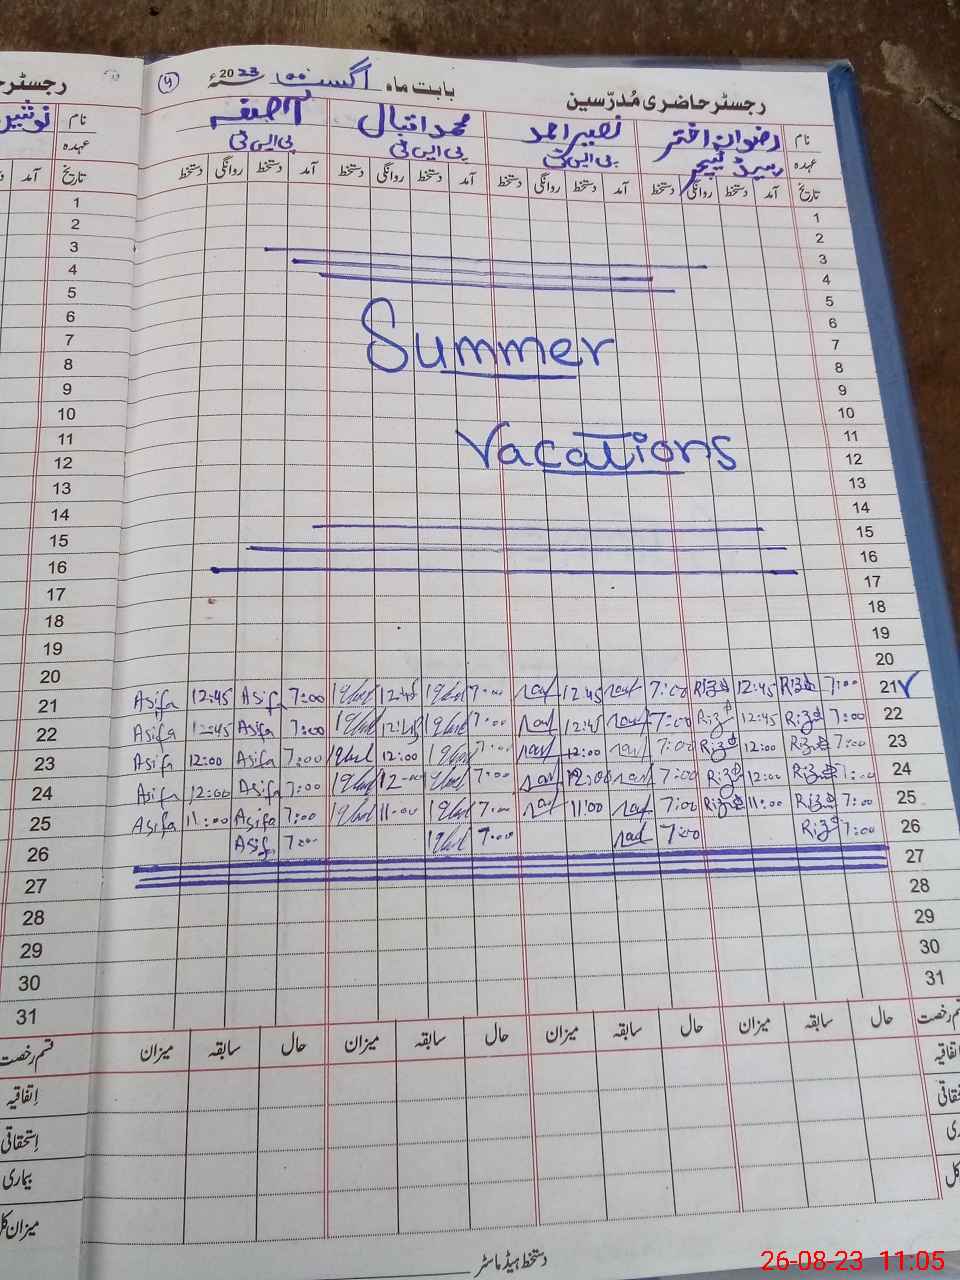 رجسٹر حاضری مُدرّسین بابت ماہ اگست 2023ء
نام رضوان اختر نصیر احمد محمد اقبال آصفہ نام
عہدہ ہیڈ ٹیچر پی ایس ٹی پی ایس ٹی پی ایس ٹی عہدہ
تاریخ آمد دستخط روانگی دستخط آمد دستخط روانگی دستخط آمد دستخط روانگی دستخط آمد دستخط روانگی دستخط تاریخ آمد
1 1
2 2
3 3
4 4
5 5
6 6
7 7
Summer
8 8
9 9
10 10
11 11
Vacations
12 12
13 13
14 14
15 15
16 16
17 17
18 18
19 19
20 20
21 Asifa 12:45 Asifa 7:00 Iqbal 12:45 Iqbal 7:00 12:45 7:00 Riz 12:45 Riz 7:00 21
22 Asifa 12:45 Asifa 7:00 Iqbal 12:45 Iqbal 7:00 12:45 7:00 Riz 12:45 Riz 7:00 22
23 Asifa 12:00 Asifa 7:00 Iqbal 12:00 Iqbal 7:00 12:00 7:00 Riz 12:00 Riz 7:00 23
24 Asifa 12:00 Asifa 7:00 Iqbal 12:00 Iqbal 7:00 12:00 7:00 Riz 12:00 Riz 7:00 24
25 Asifa 11:00 Asifa 7:00 Iqbal 11:00 Iqbal 7:00 11:00 7:00 Riz 11:00 Riz 7:00 25
26 Asif 7:00 Iqbal 7:00 7:00 Riz 7:00 26
27 27
28 28
29 29
30 30
31 31
قسم رخصت حال سابقہ میزان حال سابقہ میزان حال سابقہ میزان حال سابقہ میزان قسم رخصت
اِتفاقیہ
اِستحقاقی
بیماری
میزان کل
دستخط ہیڈ ماسٹر
26-08-23 11:05